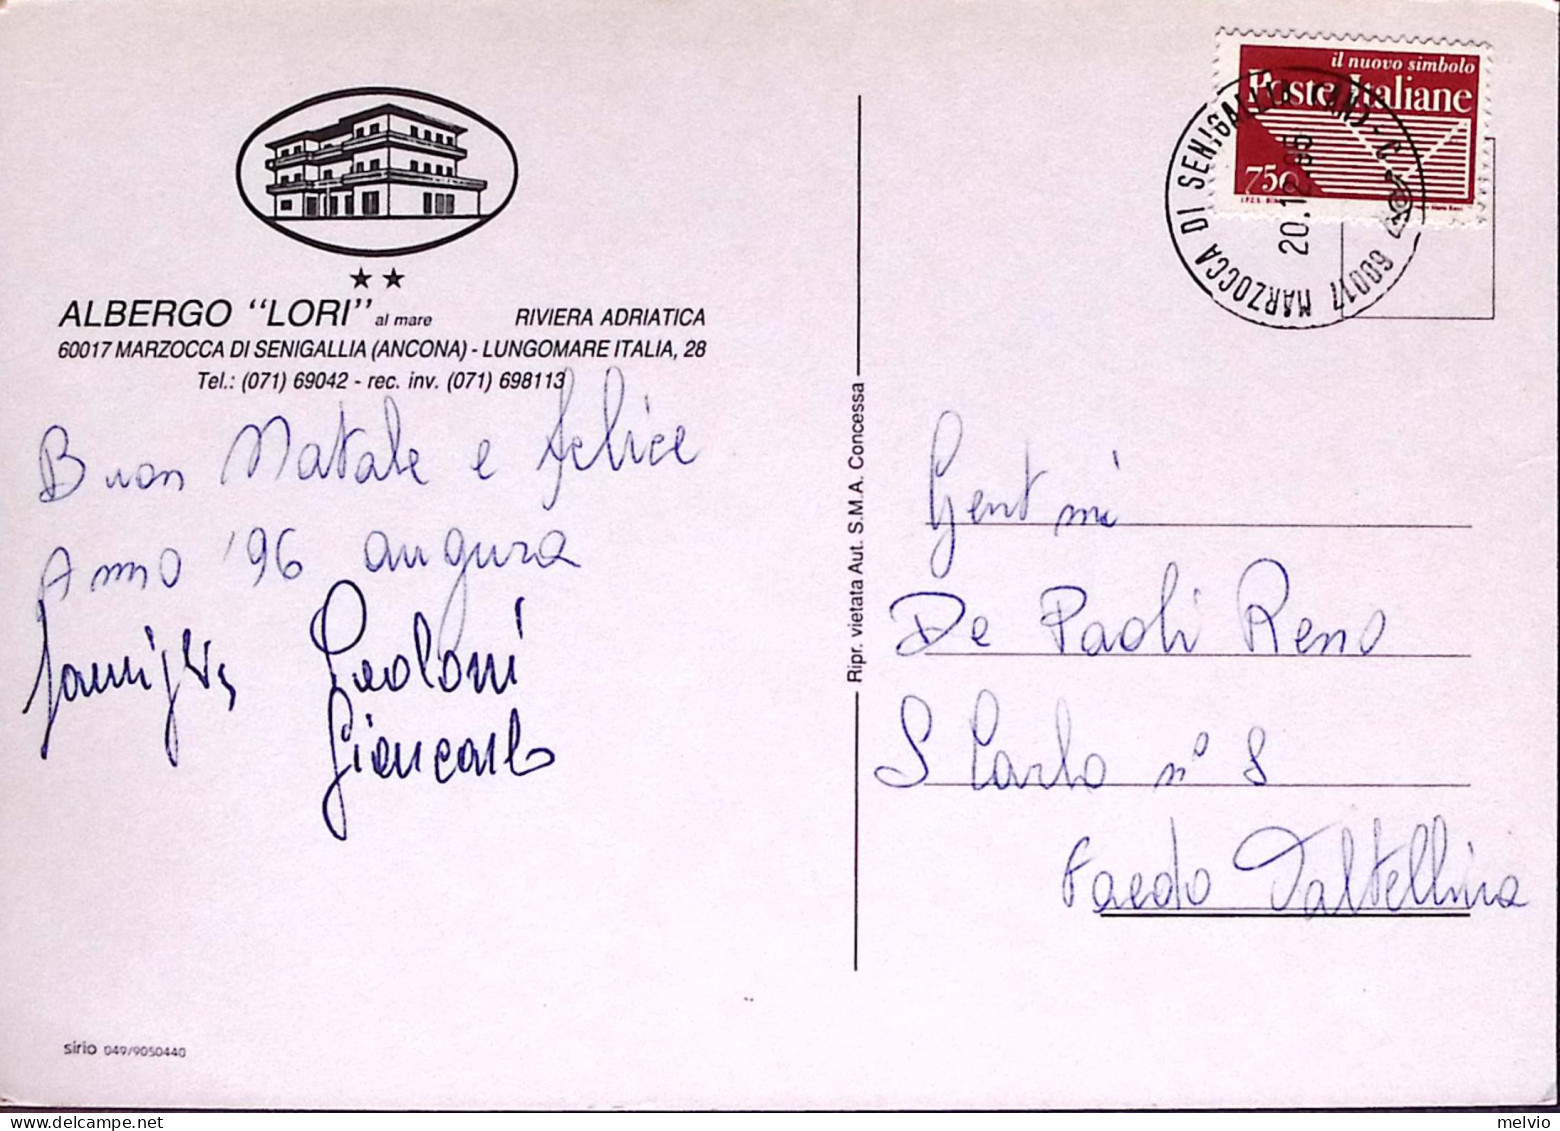 ALBERGO "LORI" al mare RIVIERA ADRIATICA
60017 MARZOCCA DI SENIGALLIA (ANCONA) - LUNGOMARE ITALIA, 28
Tel.: (071) 69042 - rec. inv. (071) 698113
Buon Natale e felice
Anno '96 augura
famiglia Paoloni
Giancarlo
sirio 049/9050440
Ripr. vietata Aut. S.M.A. Concessa
il nuovo simbolo
Poste Italiane
750
60017 MARZOCCA DI SENIGALLIA (AN)
20.12.95
Gent mi
De Paoli Reno
S Carlo n° 8
Faedo Valtellina
melvio